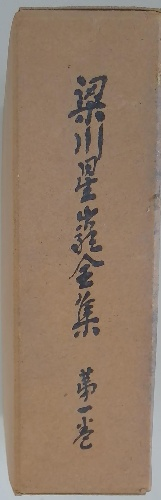 梁川星巖全集 第一卷